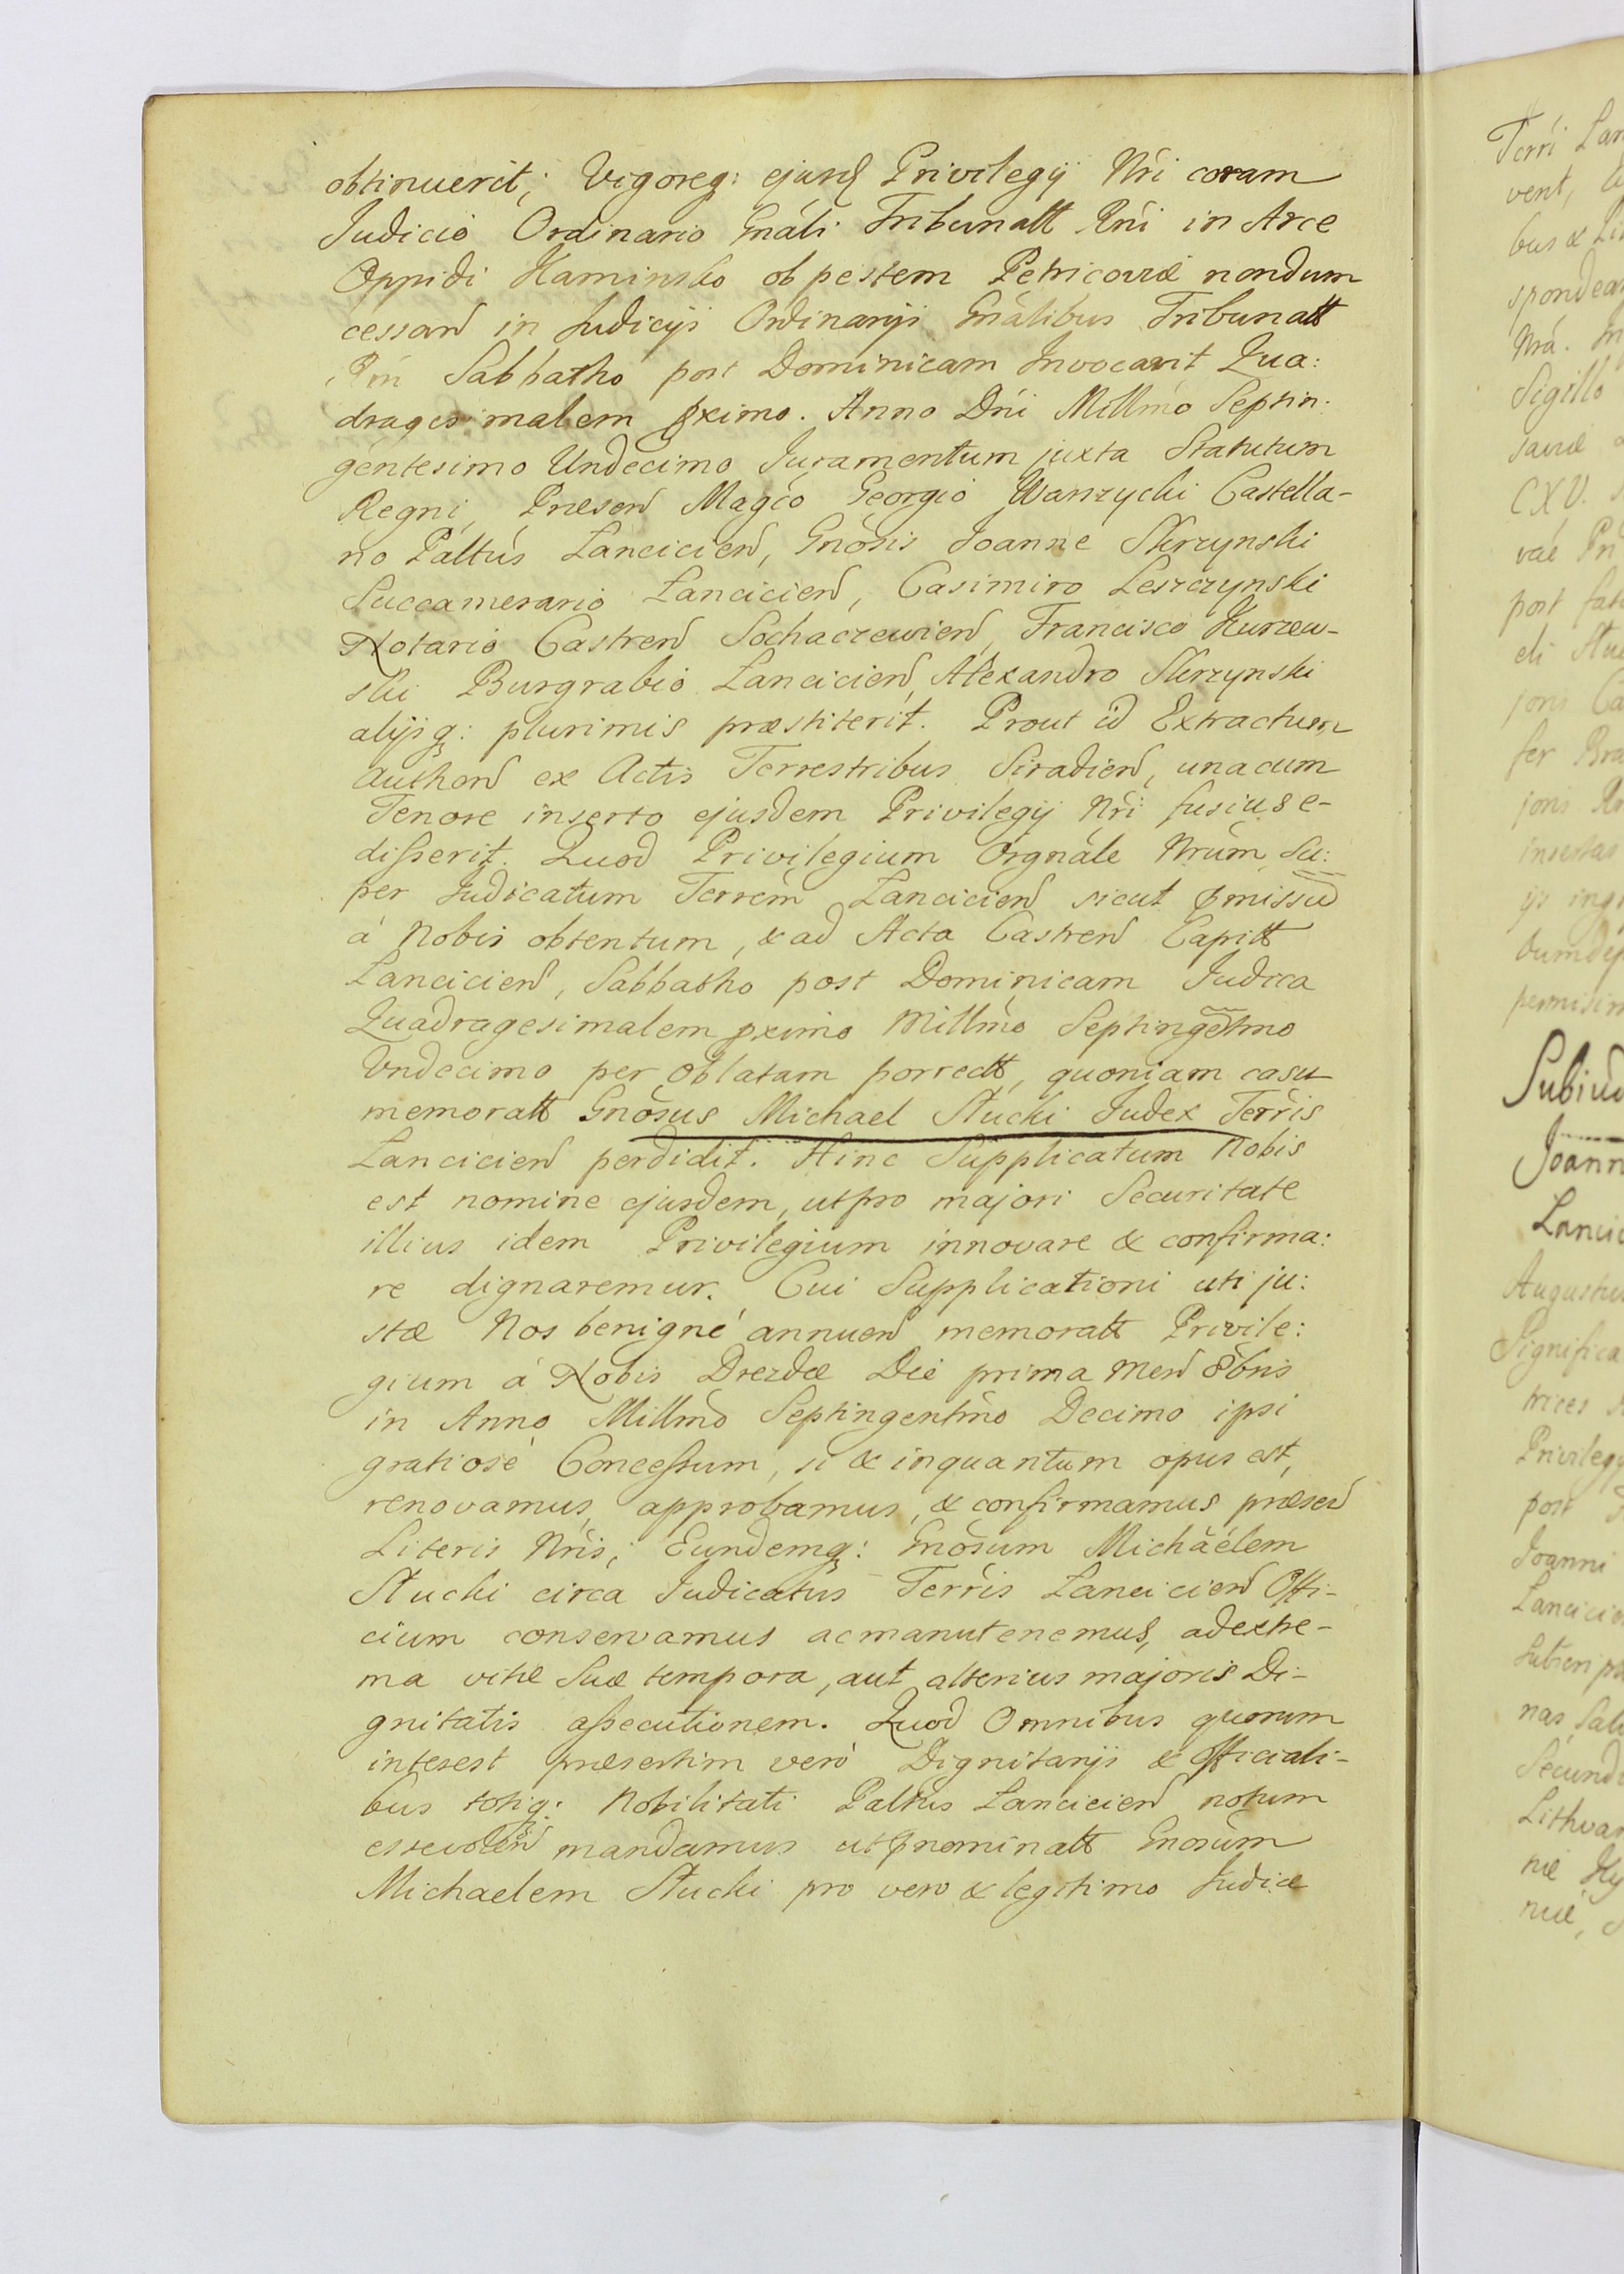 obtinuerit; Vigoreq: ejusd Privilegij Nri coram
Judicio Ordinario Gnáli Tribunalt Rni in Arce
Oppidi Kaminsko ob pestem Petricoviæ nondum
cessan in Judicijs Ordinarijs Gnálibus Tribunalt
Rni Sabbatho post Dominicam Invocavit Qua:
dragesimalem pximo. Anno Dni Millmo Septin:
gentesimo Undecimo Juramentum juxta Statutum
Regni, Præsen Magco Georgio Wanzycki Castella-
no Paltús Lancicien, Gnosis Joanne Skrzynski
Succamerario Lancicien, Casimiro Leszczynski
Notario Castren Sochaczewien, Francisco Kurzew-
ski Burgrabio Lancicien, Alexandro Skrzynski
alijsq: plurimis præstiterit. Prout id Extractum
Authen ex Actis Terrestribus Siradien, unacum
Tenore inserto ejusdem Privilegij Nri fusius e-
disserit. Quod Privilegium Orgnále Nrum Su:
per Judicatum Terrem Lancicien sicut pmissu
á Nobis obtentum, & ad Acta Castren Capitt
Lancicien, Sabbatho post Dominicam Judica
Quadragesimalem pximo Millmo Septingetmo
Undecimo per Oblatam porrectt, quoniam casu
memoratt Gnosus Michael Stucki Judex Terris
Lancicien perdidit. Hinc Supplicatum Nobis
est nomine ejusdem, ut pro majori Securitate
illius idem Privilegium innovare & confirma:
re dignaremur. Cui Supplicationi uti ju:
stæ Nos benigné annuen memoratt Privile:
gium á Nobis Drezdæ Die prima Men 8bris
in Anno Millmo Septingentmo Decimo ipsi
gratiosé Concessum, si & inquantum opus est,
renovamus, approbamus, & confirmamus præsen
Literis Nris; Eundemq: Gnosum Micháelem
Stucki circa Judicatus Terris Lancicien Offi-
cium conservamus ac manutenemus, ad extre-
ma vitæ Suæ tempora, aut alterius majoris Di-
gnitatis assecutionem. Quod Omnibus quorum
interest præsertim veró Dignitarijs & Officiali-
bus totiq: Nobilitati Paltus Lancicien notum
esse volen mandamus ut pnominatt Gnosum
Michaelem Stucki pro vero & legitimo Judice
Terri Lan
vent,
bus &
spondea
Nrá. In
Sigillo
saviæ
CXV.
post
fer Bra
insertas
permisim
Subiud
Joann
Lancic
Augustus
Significa
trices
Privilegi
post
Joanni
Lancicien
nas,
Secund
Lithvan
niæ